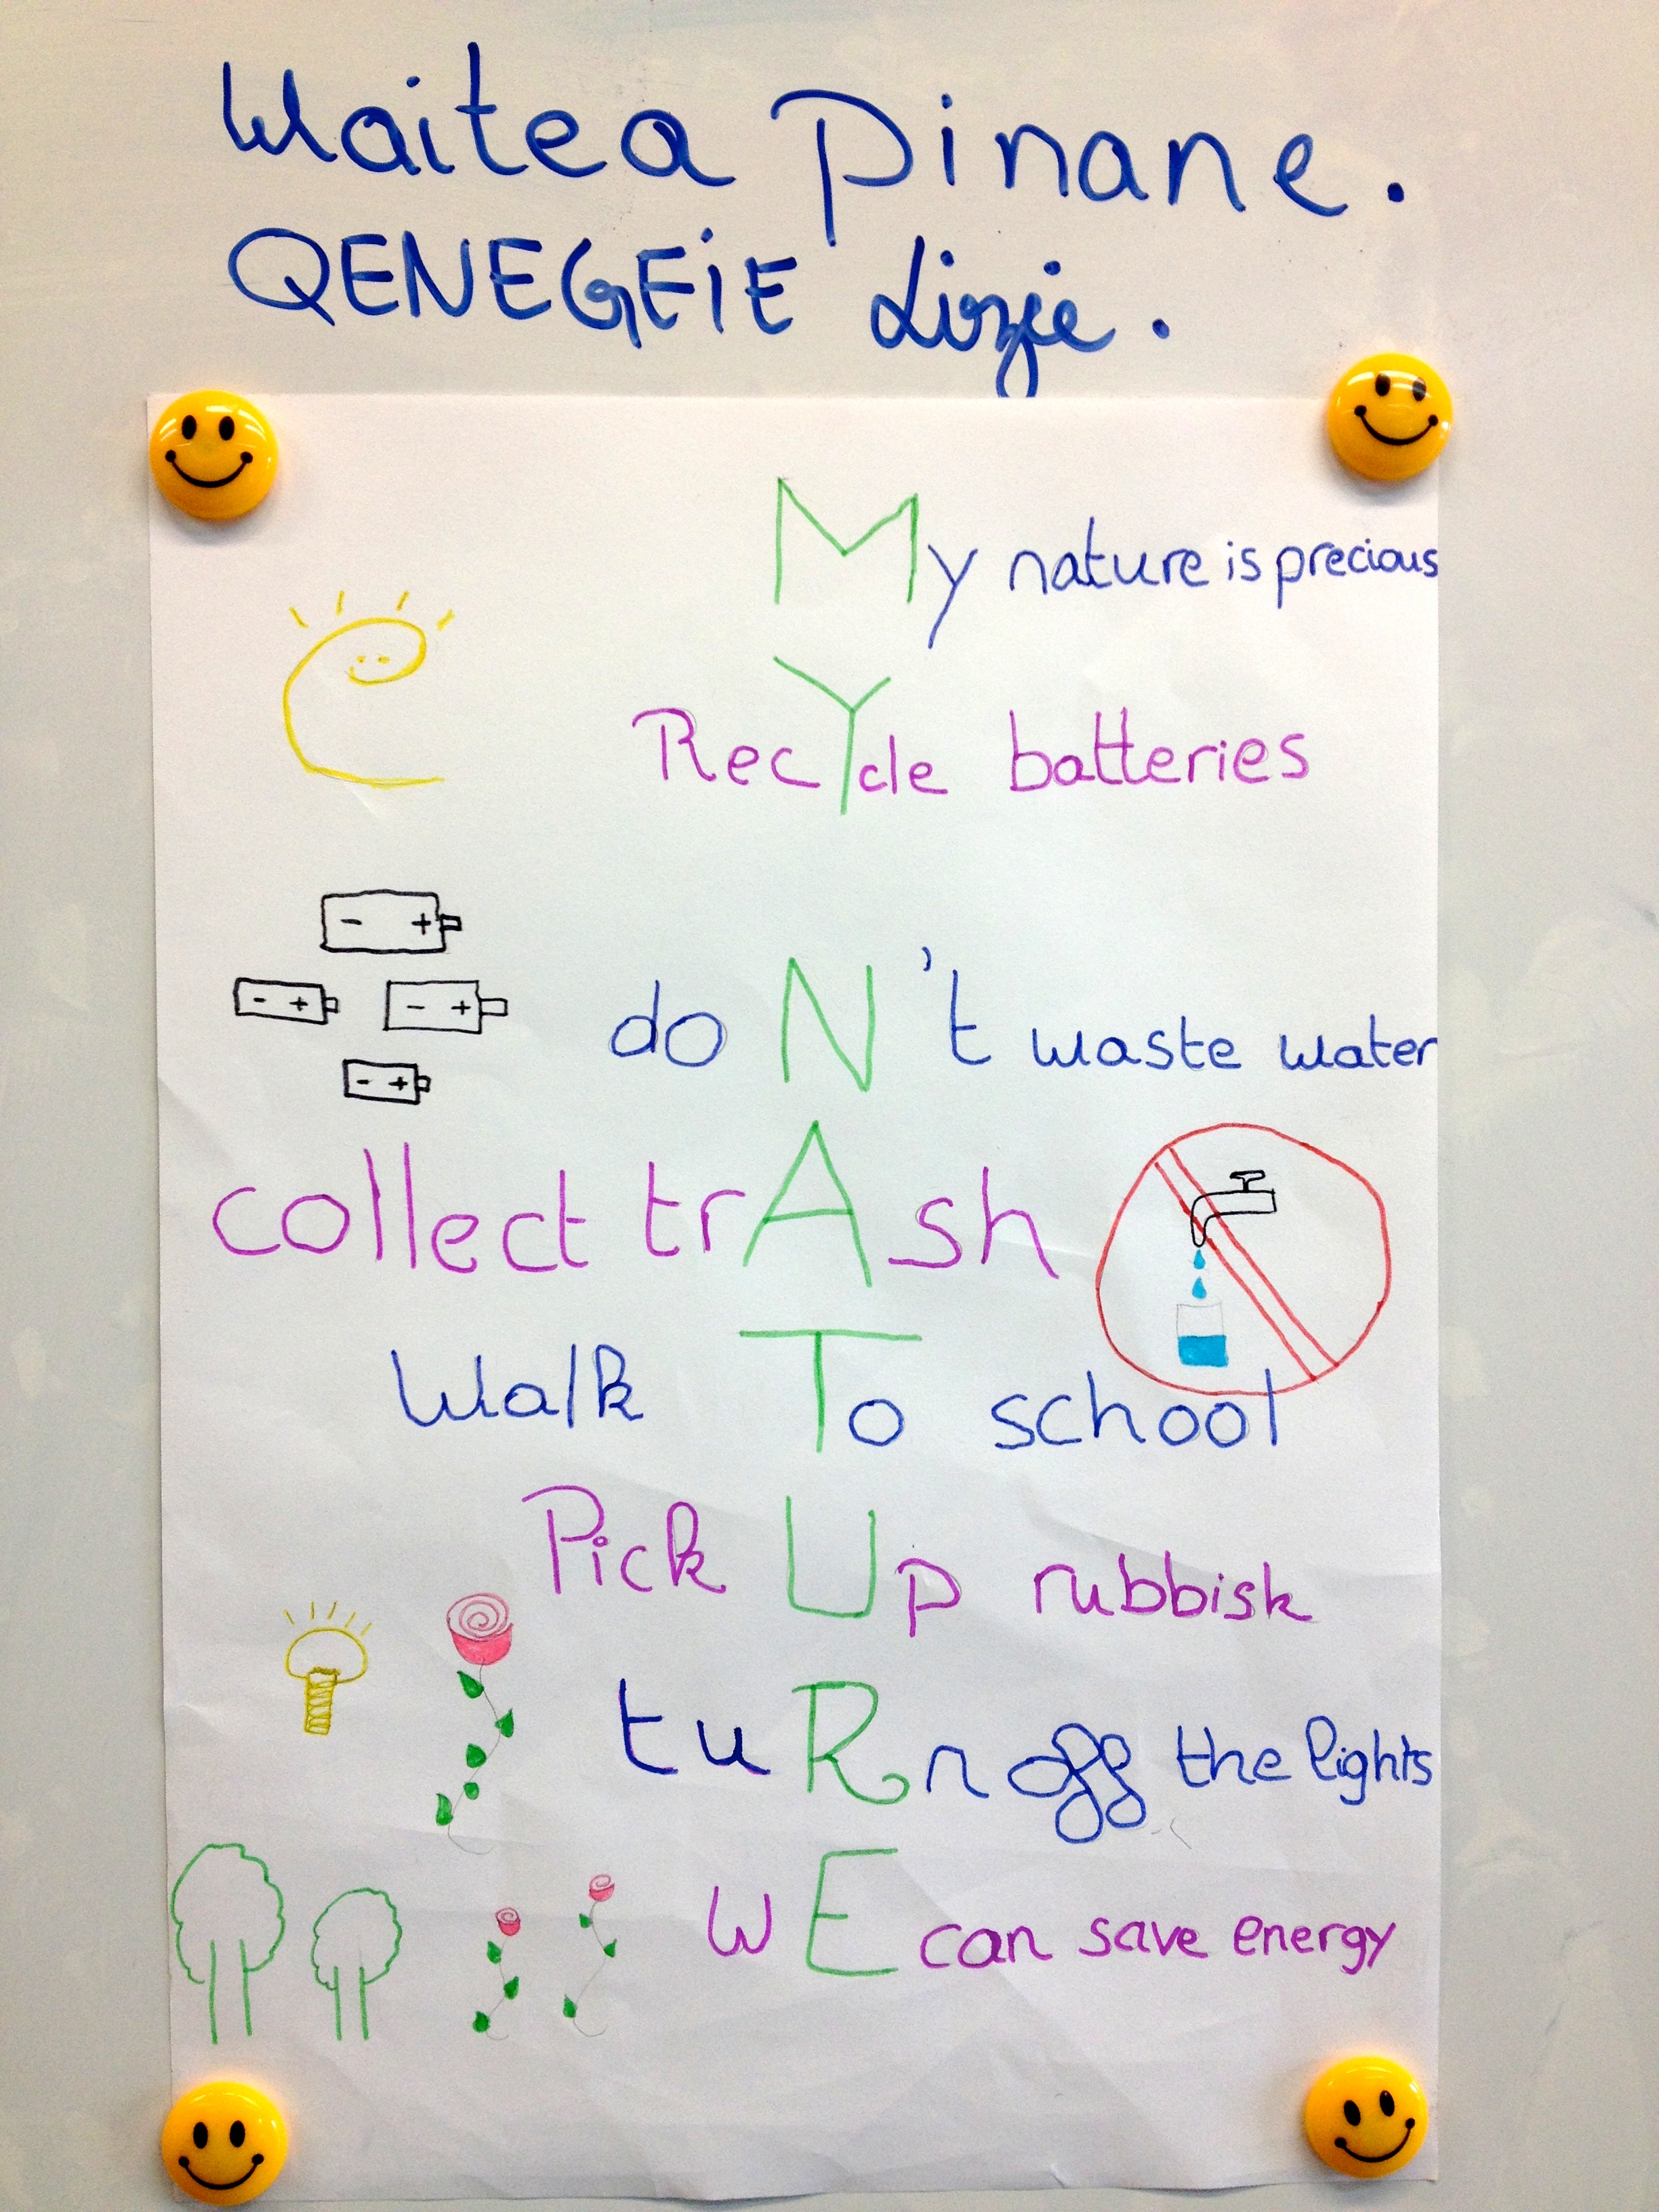 Waitea Pinane.
QENEGEIE Lizie.
My nature is precious
RecYcle batteries
- +
- + - +
- +
doN't waste water
collect trAsh
Walk To school
Pick Up rubbisk
tuRn off the lights
wE can save energy